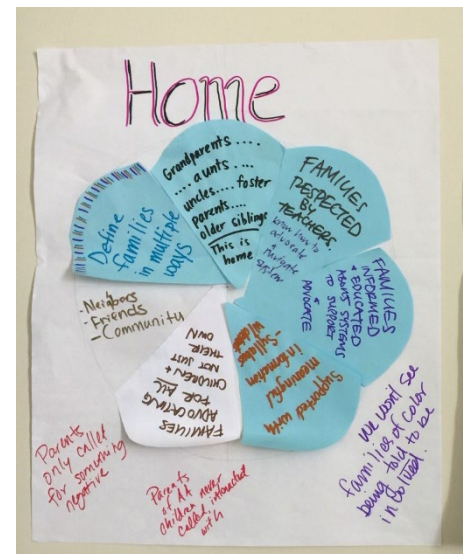 Home
Define
families
in multiple
ways
Grandparents....
....aunts...
uncles.... foster
parents....
older siblings
This is
home
FAMILIES
RESPECTED
BY
TEACHERS
know how to
advocate
+ navigate
system
FAMILIES
INFORMED
+ EDUCATED
ABOUT SYSTEMS
TO SUPPORT
+
ADVOCATE
Supported with
meaningful
information
-Syllabus
FAMILIES
ADVOCATING
FOR ALL
CHILDREN +
NOT JUST
THEIR
OWN
-Neighbors
-Friends
-Community
Parents
only called
for something
negative
Parents
of AA
children never
called, interacted
with
We won't see
families of color
being told to be
involved.